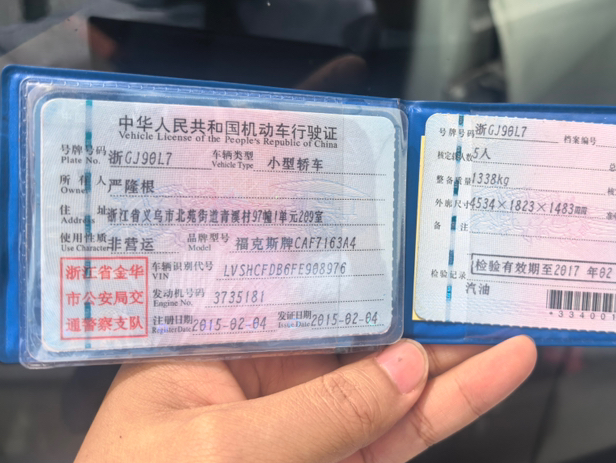 中华人民共和国机动车行驶证
Vehicle License of the People's Republic of China
号牌号码 浙GJ90L7 车辆类型 小型轿车
Plate No. Vehicle Type
所有人 严隆根
Owner
住址 浙江省义乌市北苑街道青溪村97幢1单元209室
Address
使用性质 非营运 品牌型号 福克斯牌CAF7163A4
Use Character Model
浙江省金华
市公安局交
通警察支队
车辆识别代号 LVSHCFDB6FE908976
VIN
发动机号码 3735181
Engine No.
注册日期 2015-02-04 发证日期 2015-02-04
Register Date Issue Date
号牌号码 浙GJ90L7 档案编号
核定载人数 5人
整备质量 1338kg
外廓尺寸 4534×1823×1483mm
备注
检验记录 检验有效期至2017 年02
汽油
*334001